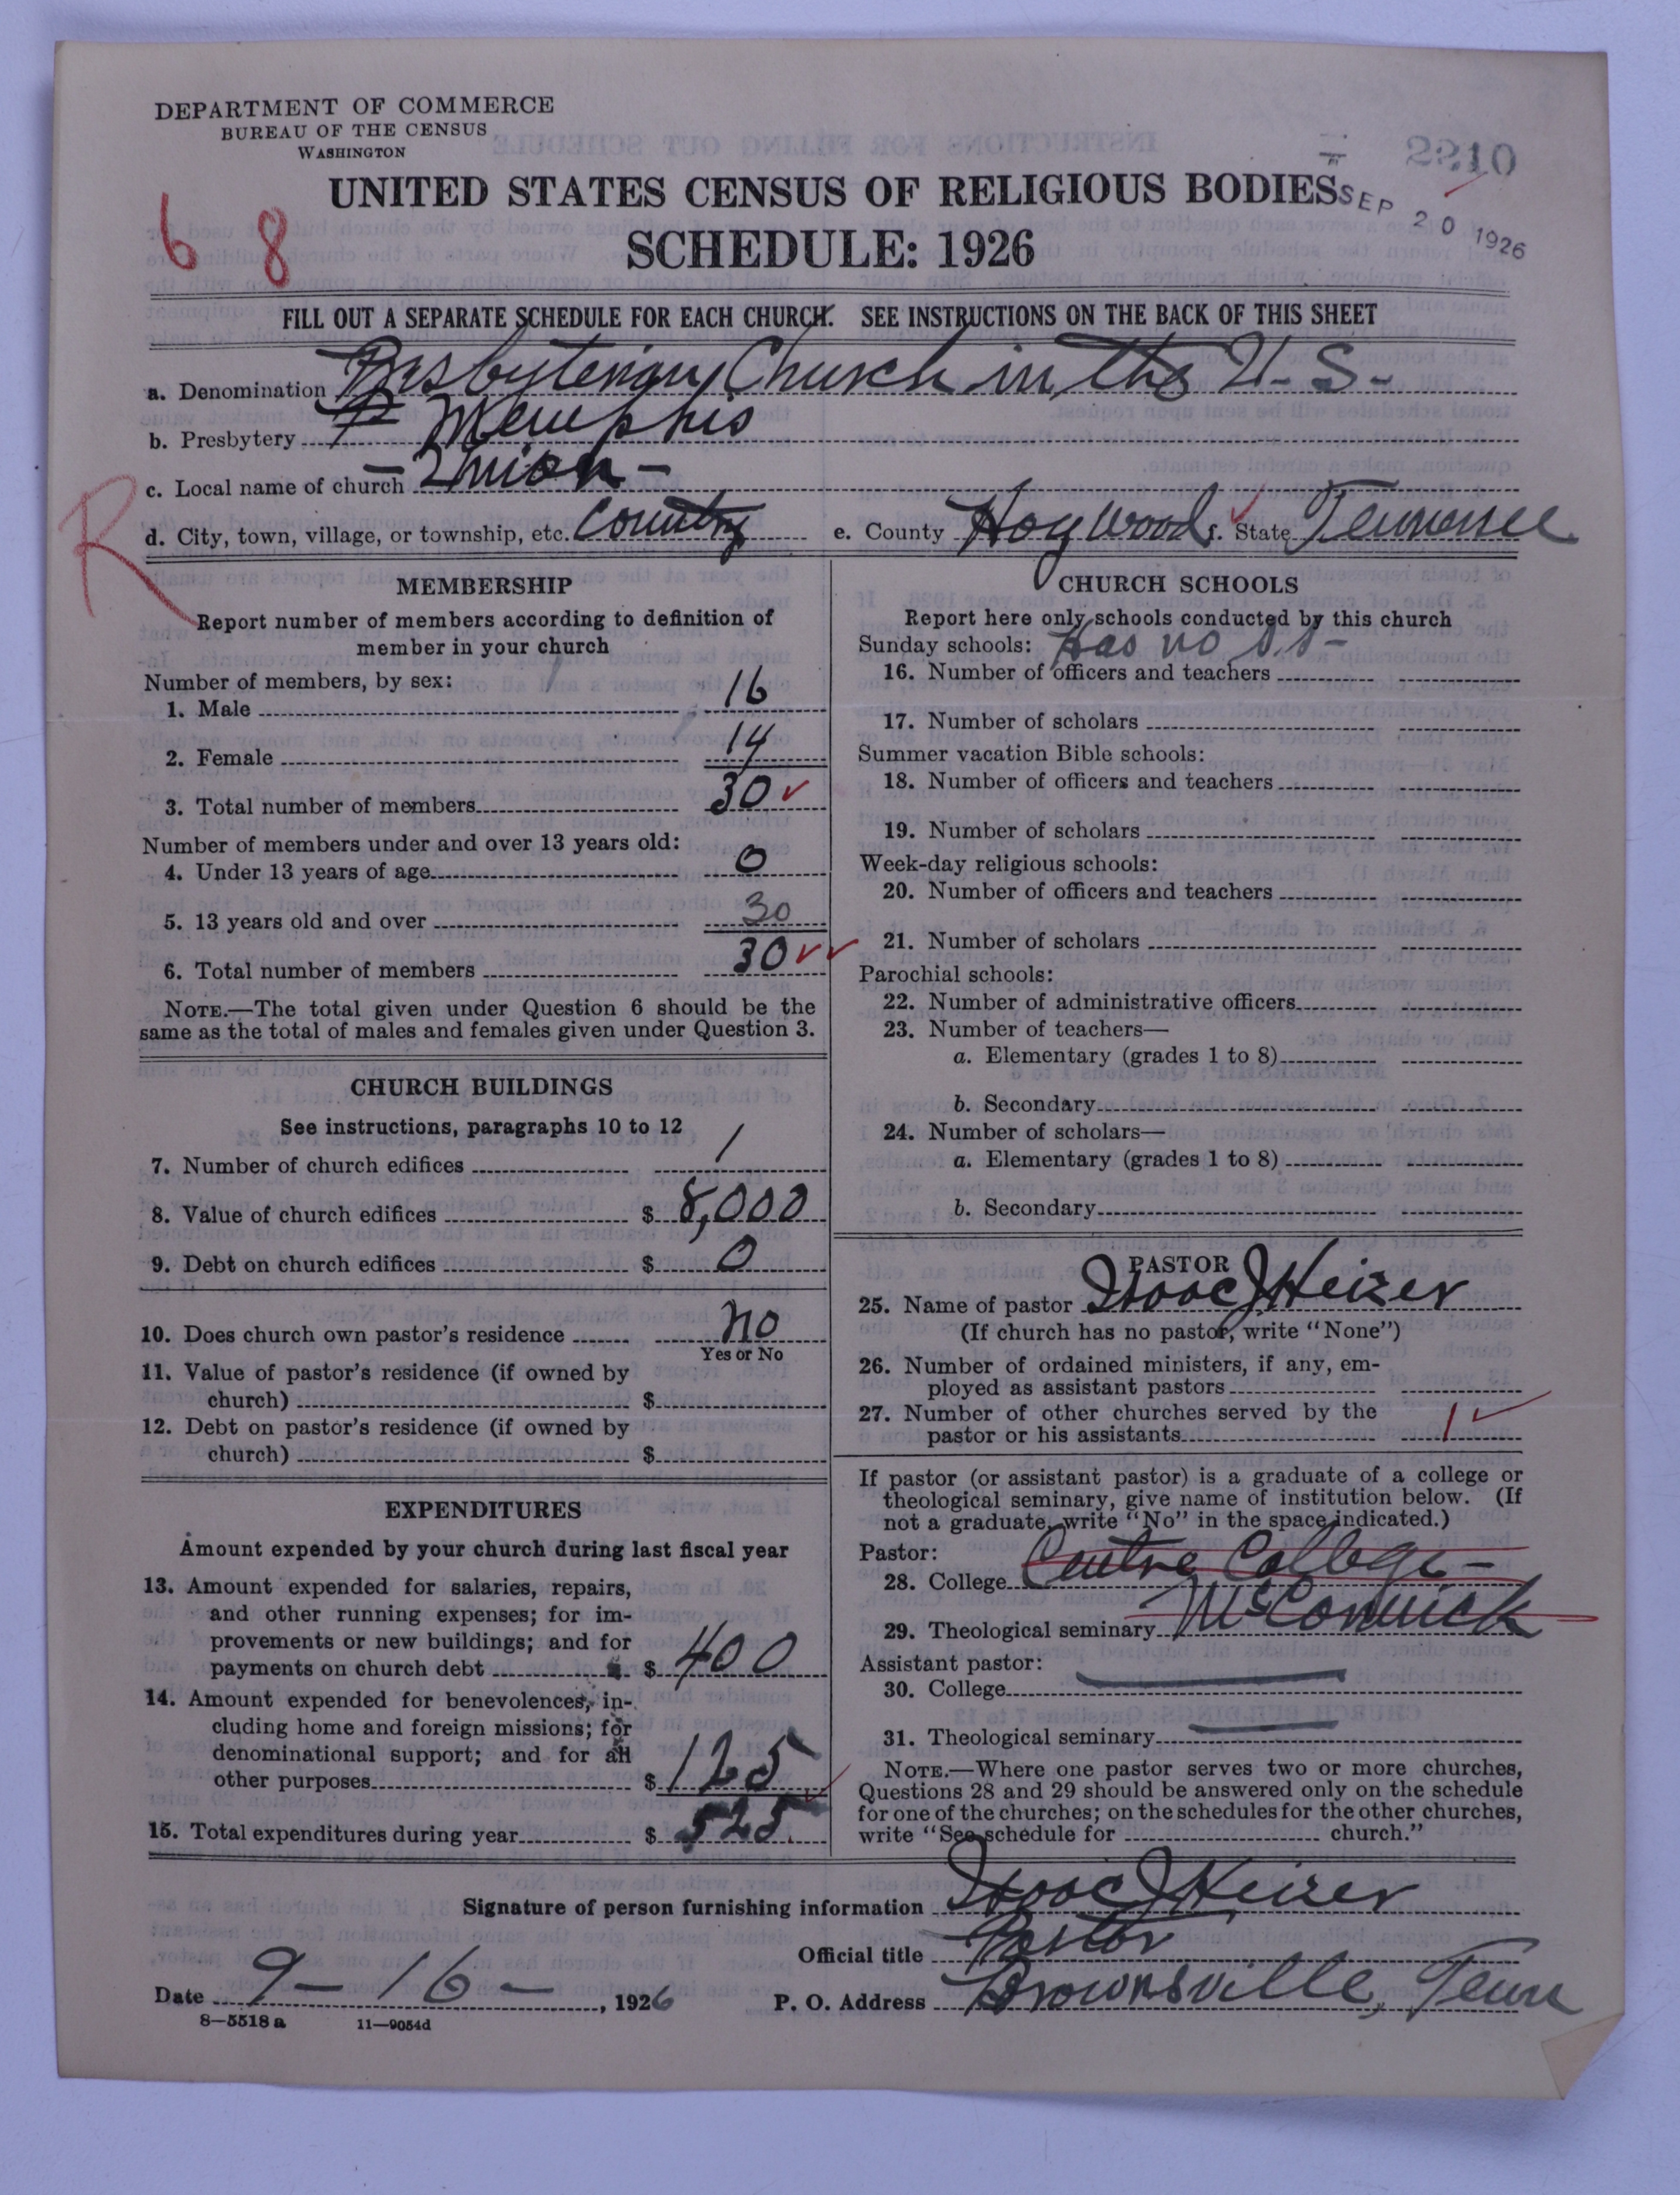 DEPARTMENT OF COMMERCE
BUREAU OF THE CENSUS
WASHINGTON
2210
UNITED STATES CENSUS OF RELIGIOUS BODIES
SEP 20 1926
6 8
SCHEDULE: 1926
FILL OUT A SEPARATE SCHEDULE FOR EACH CHURCH. SEE INSTRUCTIONS ON THE BACK OF THIS SHEET
a. Denomination Presbyterian Church in the U-S-
b. Presbytery Memphis
c. Local name of church - Union -
R
d. City, town, village, or township, etc. Country e. County Haywood f. State Tennessee
MEMBERSHIP
Report number of members according to definition of
member in your church
Number of members, by sex:
1. Male 16
2. Female 14
3. Total number of members 30
Number of members under and over 13 years old:
4. Under 13 years of age 0
5. 13 years old and over 30
6. Total number of members 30
NOTE.—The total given under Question 6 should be the
same as the total of males and females given under Question 3.
CHURCH BUILDINGS
See instructions, paragraphs 10 to 12
7. Number of church edifices 1
8. Value of church edifices $ 8,000
9. Debt on church edifices $ 0
10. Does church own pastor's residence no
Yes or No
11. Value of pastor's residence (if owned by
church) $
12. Debt on pastor's residence (if owned by
church) $
EXPENDITURES
Amount expended by your church during last fiscal year
13. Amount expended for salaries, repairs,
and other running expenses; for im-
provements or new buildings; and for
payments on church debt $ 400
14. Amount expended for benevolences, in-
cluding home and foreign missions; for
denominational support; and for all
other purposes $ 125
15. Total expenditures during year $ 525
CHURCH SCHOOLS
Report here only schools conducted by this church
Sunday schools: Has no S.S-
16. Number of officers and teachers
17. Number of scholars
Summer vacation Bible schools:
18. Number of officers and teachers
19. Number of scholars
Week-day religious schools:
20. Number of officers and teachers
21. Number of scholars
Parochial schools:
22. Number of administrative officers
23. Number of teachers—
a. Elementary (grades 1 to 8)
b. Secondary
24. Number of scholars—
a. Elementary (grades 1 to 8)
b. Secondary
PASTOR
25. Name of pastor Isaac J Heizer
(If church has no pastor, write "None")
26. Number of ordained ministers, if any, em-
ployed as assistant pastors
27. Number of other churches served by the
pastor or his assistants 1
If pastor (or assistant pastor) is a graduate of a college or
theological seminary, give name of institution below. (If
not a graduate, write "No" in the space indicated.)
Pastor:
28. College Centre College -
29. Theological seminary McCormick
Assistant pastor:
30. College
31. Theological seminary
NOTE.—Where one pastor serves two or more churches,
Questions 28 and 29 should be answered only on the schedule
for one of the churches; on the schedules for the other churches,
write "See schedule for church."
Signature of person furnishing information Isaac J Heizer
Official title Pastor
Date 9-16-, 1926 P. O. Address Brownsville, Tenn
8-5518 a 11-9054d